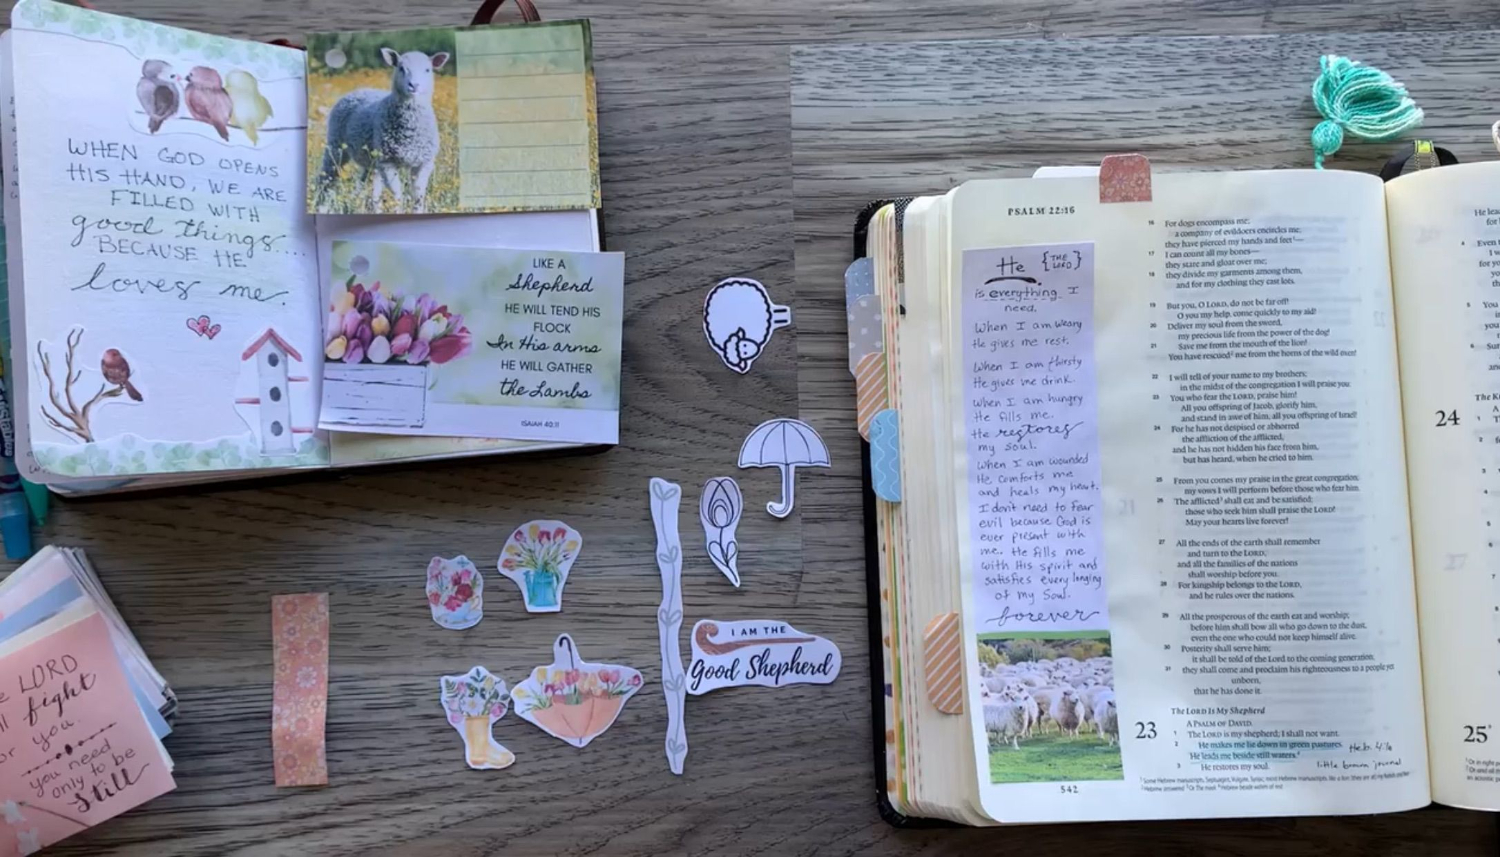 WHEN GOD OPENS
HIS HAND, WE ARE
FILLED WITH
good things....
BECAUSE HE
loves me.
LIKE A
Shepherd
HE WILL TEND HIS
FLOCK
In His arms
HE WILL GATHER
the Lambs
ISAIAH 40:11
LORD
fight
you.
you need
only to be
Still
I AM THE
Good Shepherd
He {THE LORD}
is everything I
need.
When I am weary
He gives me rest.
When I am thirsty
He gives me drink.
When I am hungry
He fills me.
He restores
my soul.
When I am wounded
He comforts me
and heals my heart.
I don't need to fear
evil because God is
ever present with
me. He fills me
with His spirit and
satisfies every longing
of my Soul.
forever
PSALM 22:16
16 For dogs encompass me;
a company of evildoers encircles me;
they have pierced my hands and feet—
17 I can count all my bones—
they stare and gloat over me;
18 they divide my garments among them,
and for my clothing they cast lots.
19 But you, O LORD, do not be far off!
O you my help, come quickly to my aid!
20 Deliver my soul from the sword,
my precious life from the power of the dog!
21 Save me from the mouth of the lion!
You have rescued me from the horns of the wild oxen!
22 I will tell of your name to my brothers;
in the midst of the congregation I will praise you:
23 You who fear the LORD, praise him!
All you offspring of Jacob, glorify him,
and stand in awe of him, all you offspring of Israel!
24 For he has not despised or abhorred
the affliction of the afflicted,
and he has not hidden his face from him,
but has heard, when he cried to him.
25 From you comes my praise in the great congregation;
my vows I will perform before those who fear him.
26 The afflicted shall eat and be satisfied;
those who seek him shall praise the LORD!
May your hearts live forever!
27 All the ends of the earth shall remember
and turn to the LORD,
and all the families of the nations
shall worship before you.
28 For kingship belongs to the LORD,
and he rules over the nations.
29 All the prosperous of the earth eat and worship;
before him shall bow all who go down to the dust,
even the one who could not keep himself alive.
30 Posterity shall serve him;
it shall be told of the Lord to the coming generation;
31 they shall come and proclaim his righteousness to a people yet
unborn,
that he has done it.
The LORD Is My Shepherd
23 A PSALM OF DAVID.
1 The LORD is my shepherd; I shall not want.
2 He makes me lie down in green pastures.
He leads me beside still waters.
3 He restores my soul.
Heb. 4:16
little brown journal
542
24
25